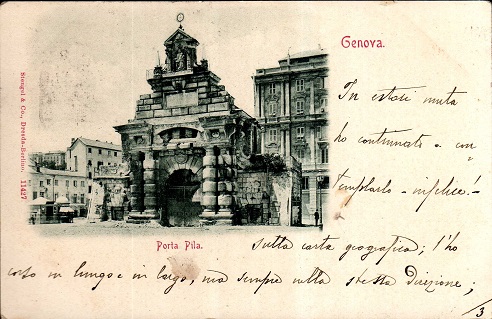 Genova.
Stengel & Co., Dresda-Berlino. 11427
In estasi muta
ho continuato a con
templarlo - infelice! -
Porta Pila.
sulla carta geografica; l'ho
corso in lungo e in largo, ma sempre nella stessa direzione;
3